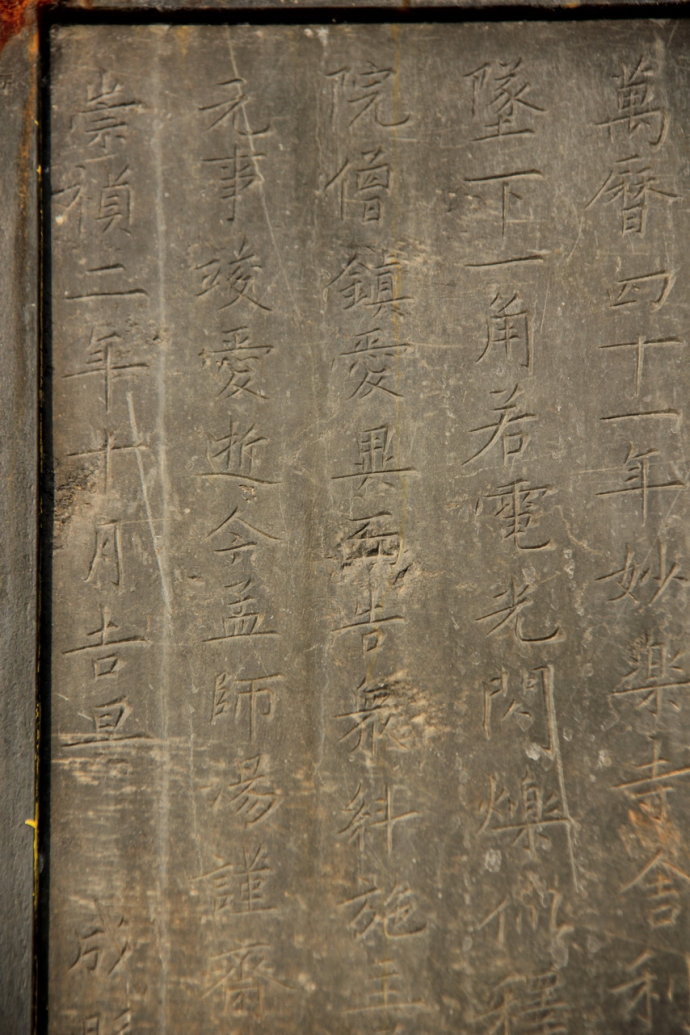 萬曆四十一年妙樂寺舍利
墜下一角若電光閃爍
院僧鎮愛異而告衆糾施主
元事竣愛逝今孟師湯謹齋
崇禎二年十月吉旦 成